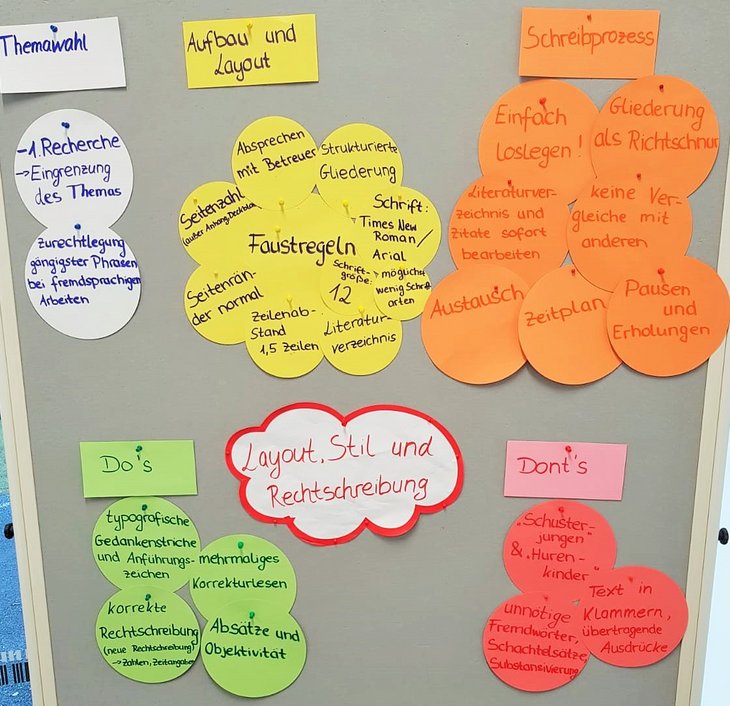 Themawahl
-1. Recherche
→Eingrenzung
des Themas
zurechtlegung
gängigster Phrasen
bei fremdsprachigen
Arbeiten
Aufbau und
Layout
Absprechen
mit Betreuer
Strukturierte
Gliederung
Seitenzahl
(außer Anhang, Deckbla
Faustregeln
Schrift:
Times New
Roman/
Arial
→ möglichst
wenig Schrift
arten
Schrift-
größe:
12
Seitenrän-
der normal
Zeilenab-
stand
1,5 Zeilen
Literatur-
verzeichnis
Schreibprozess
Einfach
loslegen!
Gliederung
als Richtschnur
Literaturver-
zeichnis und
Zitate sofort
bearbeiten
keine Ver-
gleiche mit
anderen
Austausch
Zeitplan
Pausen
und
Erholungen
Layout, Stil und
Rechtschreibung
Do's
typografische
Gedankenstriche
und Anführungs-
zeichen
mehrmaliges
Korrekturlesen
korrekte
Rechtschreibung
(neue Rechtschreibung)
→ Zahlen, Zeitangaben
Absätze und
Objektivität
Dont's
„Schuster-
jungen"
& „Huren-
kinder"
Text in
Klammern,
übertragende
Ausdrücke
unnötige
Fremdwörter,
Schachtelsätze,
Substansivierung